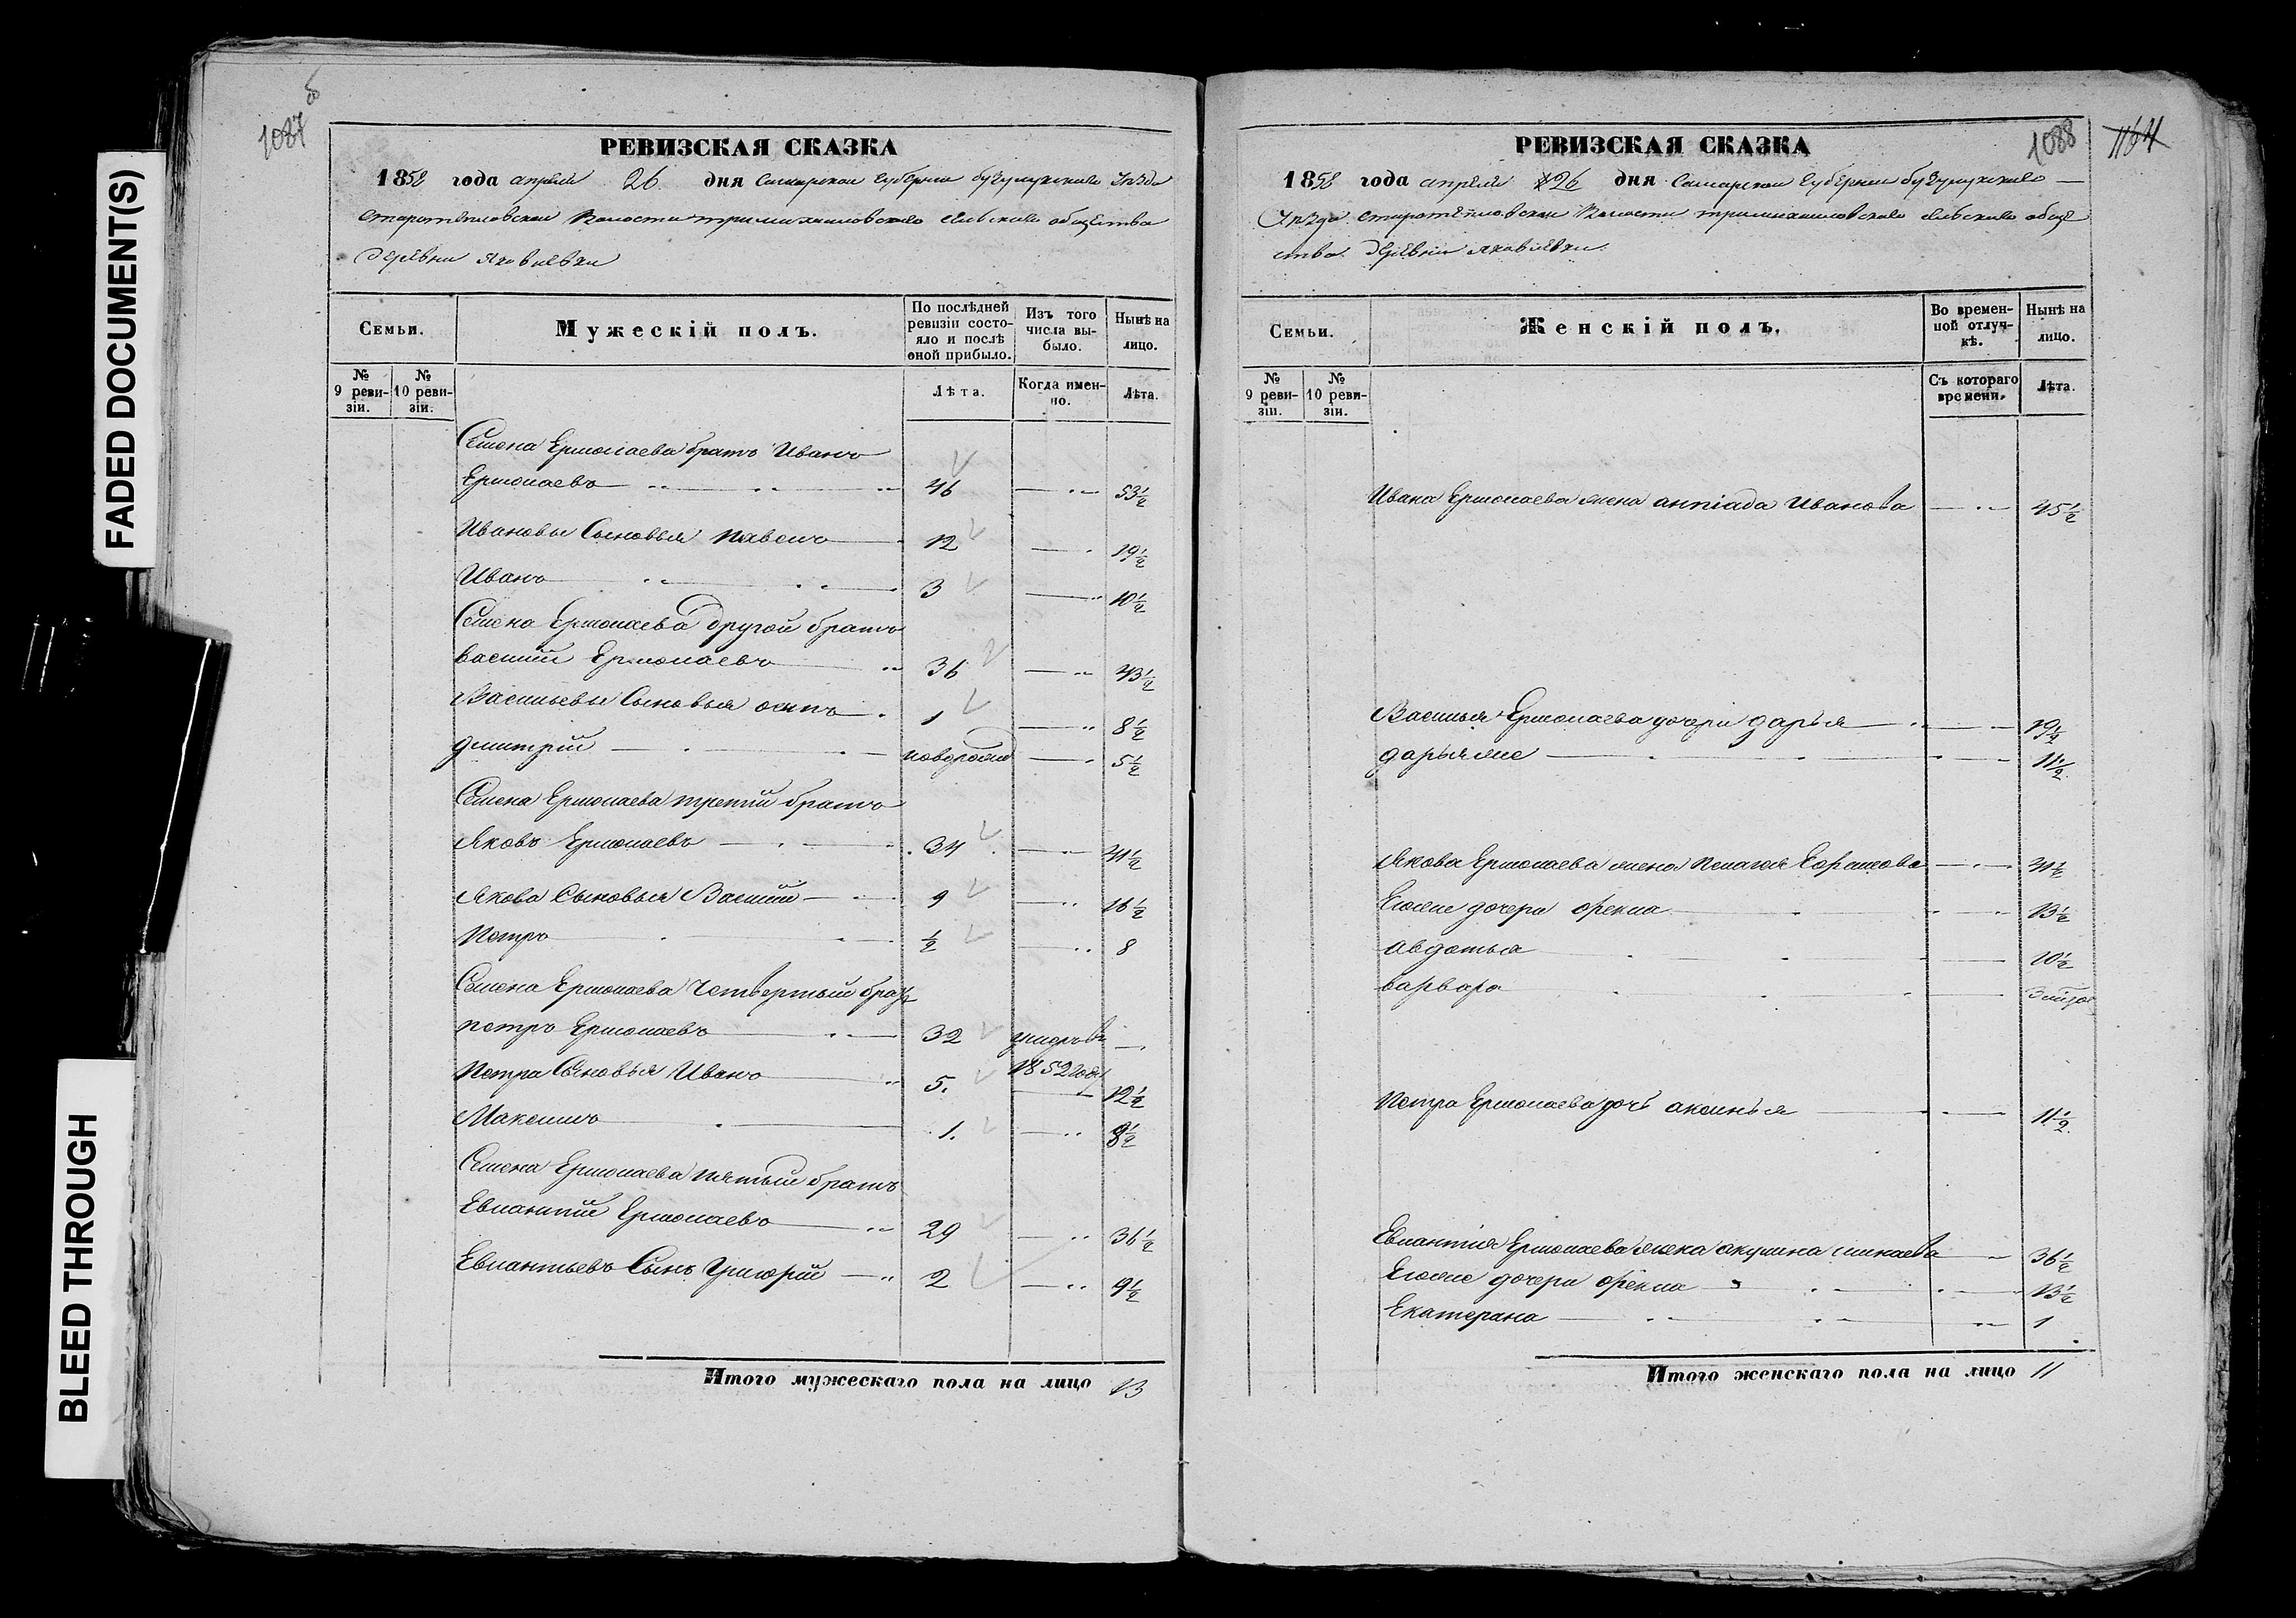 FADED DOCUMENT(S)
BLEED THROUGH
1087
об
РЕВИЗСКАЯ СКАЗКА
1858 года апреля 26 дня Самарской губернии бузулукскаго Уезда
старотепловской Волости тримихаиловского сельскаго общества
деревни Яковлевки
Семьи.
Мужескій полъ.
По послѣдней ревизіи состояло и послѣ оной прибыло.
Изъ того числа выбыло.
Нынѣ на лицо.
№ 9 ревизіи.
№ 10 ревизіи.
Лѣта.
Когда именно.
Лѣта.
Семена Ермолаева братъ Иванъ
Ермолаевъ 46 53½
Ивановы Сыновья павелъ 12 19½
Иванъ 3 10½
Семена Ермолаева другой братъ
василий Ермолаевъ 36 43½
Васильевы Сыновья осипъ 1 8½
дмитрий 5½
Семена Ермолаева третий братъ
Яковъ Ермолаевъ 34 41½
Якова Сыновья Василий 9 16½
Петръ ½ 8
Семена Ермолаева четвертый братъ
петръ Ермолаевъ 32 умеръ въ
1852 годе
Петра Сыновья Иванъ 5. 12½
Максимъ 1. 8½
Семена Ермолаева пятый братъ
Евлантий Ермолаевъ 29 36½
Евлантьевъ Сынъ Григорий 2 9½
Итого мужескаго пола на лицо 13
РЕВИЗСКАЯ СКАЗКА
1088
1164
1858 года апреля 26 дня Самарской губернии бузулукскаго
Уезда старотепловской Волости тримихаиловскаго сельскаго обще
ства деревни яковлевки
Семьи.
Женскій полъ.
Во временной отлучкѣ.
Нынѣ на лицо.
№ 9 ревизіи.
№ 10 ревизіи.
Съ котораго времени.
Лѣта.
Ивана Ермолаева жена Иванова 45½
Василья Ермолаева дочери дарья 19½
дарья же 11½
Якова Ермолаева жена Пелагея 41½
Ево же дочери Фекла 13½
авдотья 10½
варвара
Петра Ермолаева дочь аксинья 11½
Евлантия Ермолаева жена акулина 36½
Ево же дочери Фекла 13½
Екатерана 1
Итого женскаго пола на лицо 11